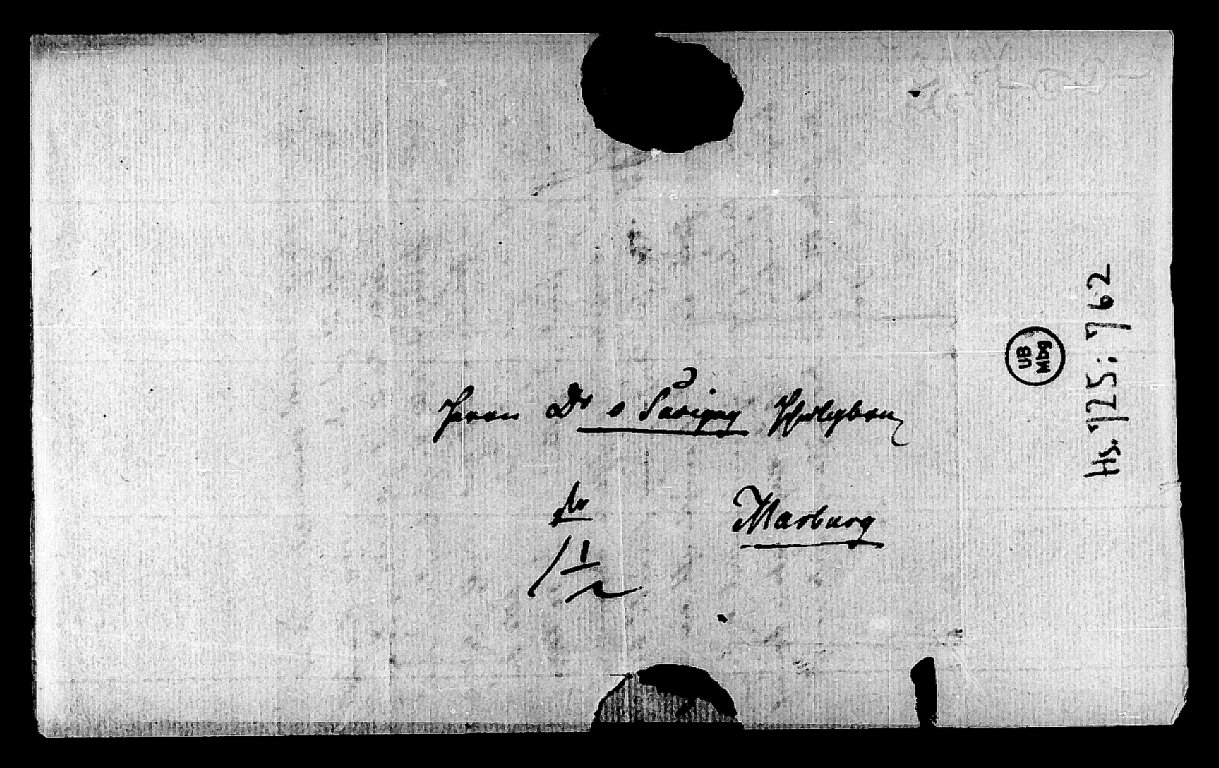 Herrn Dr v Savigny Wohlgebor.
fr
Marburg
1/2
UB
Mbg
Hs. 725: 762